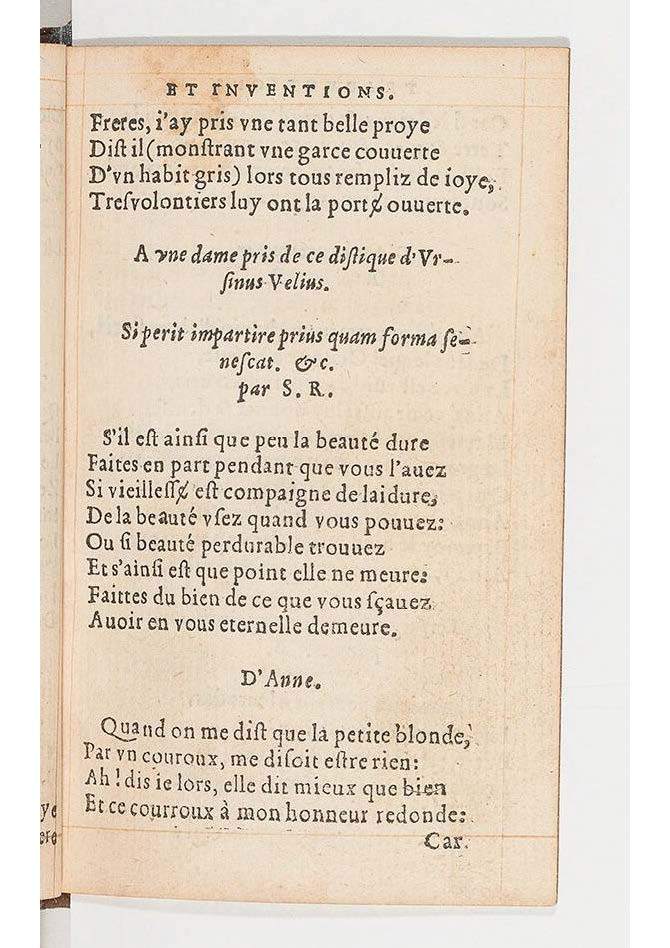 ET INVENTIONS.
Freres, i'ay pris vne tant belle proye
Dist il (monstrant vne garce couuerte
D'vn habit gris) lors tous rempliz de ioye,
Tresvolontiers luy ont la portɇ ouuerte.
A vne dame pris de ce distique d'Vr-
sinus Velius.
Si perit impartire prius quam forma se-
nescat. &c.
par S. R.
S'il est ainsi que peu la beauté dure
Faites en part pendant que vous l'auez
Si vieillessɇ est compaigne de laidure,
De la beauté vsez quand vous pouuez:
Ou si beauté perdurable trouuez
Et s'ainsi est que point elle ne meure:
Faittes du bien de ce que vous sçauez
Auoir en vous eternelle demeure.
D'Anne.
Quand on me dist que la petite blonde,
Par vn couroux, me disoit estre rien:
Ah! dis ie lors, elle dit mieux que bien
Et ce courroux à mon honneur redonde:
Car.
ye
ere